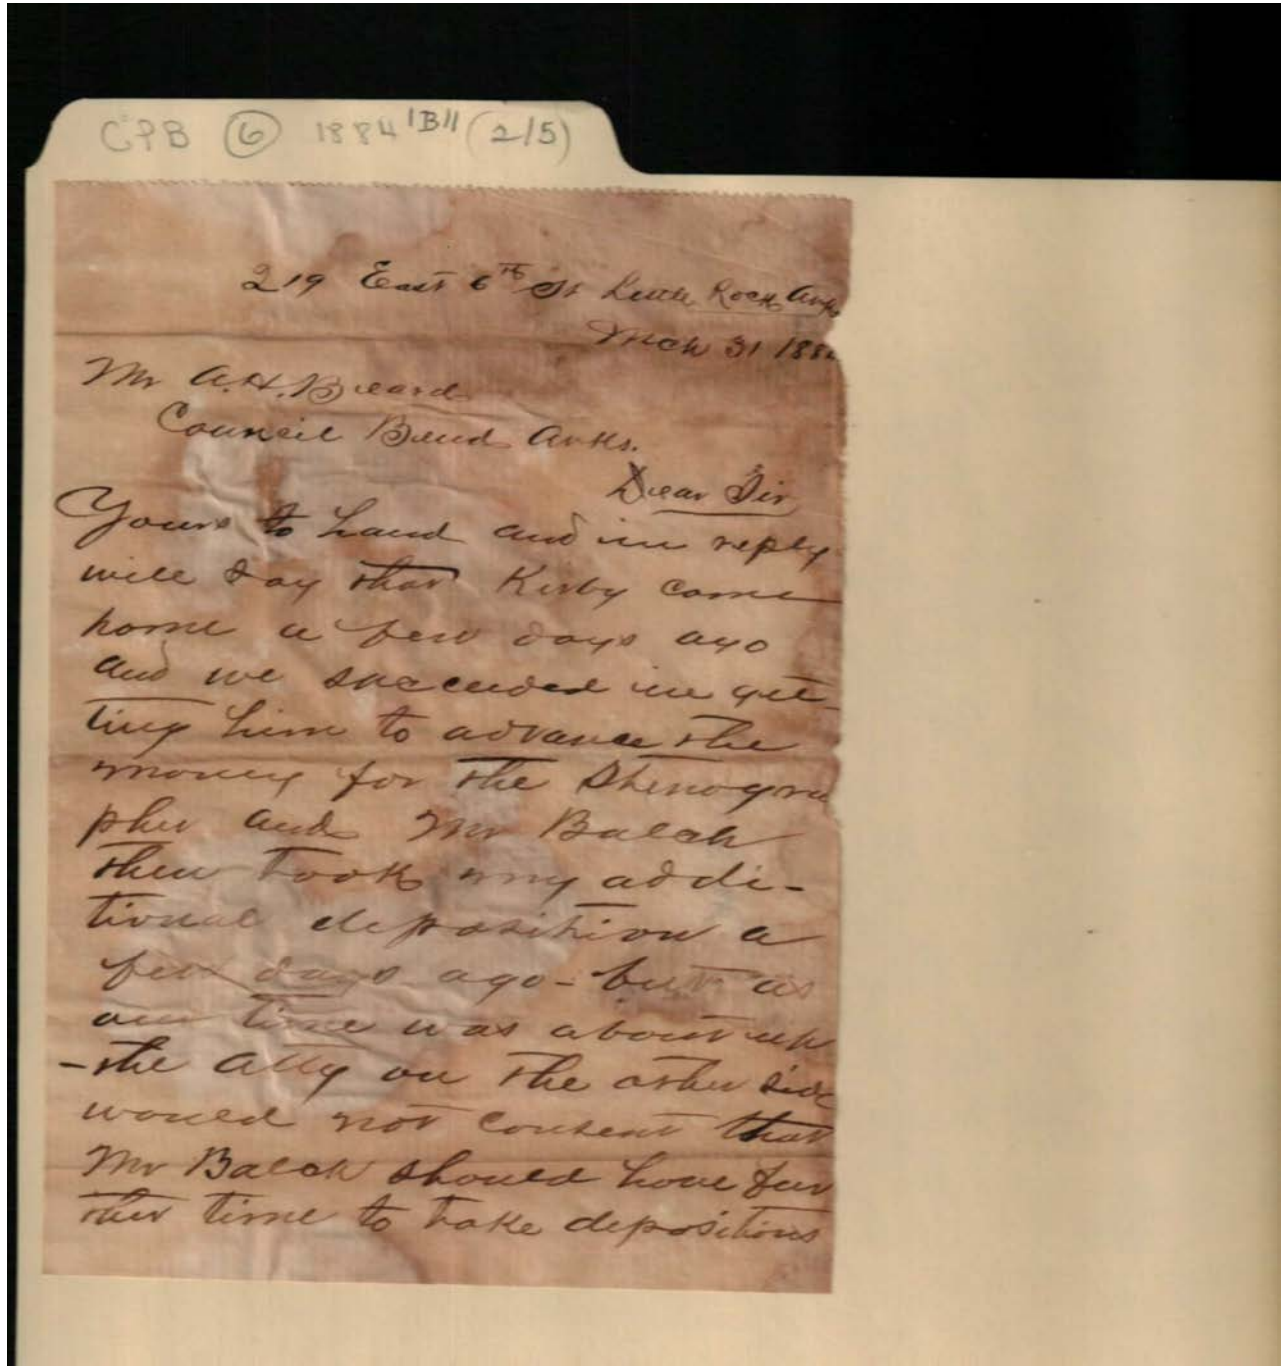 CPB 6 1884 "B" (2/5)
219 East 6th St Little Rock Arks
Mch 31 188
Mr A. H. Beard
Council Bend Arks.
Dear Sir
Yours to hand and in reply
will say that Kirby came
home a few days ago
and we succeeded in get-
ting him to advance the
money for the Stenogra
pher and Mr Balch
then took my addi-
tional deposition a
few days ago - but as
our time was about up
- the Atty on the other side
would not consent that
Mr Balch should have fur
ther time to take depositions